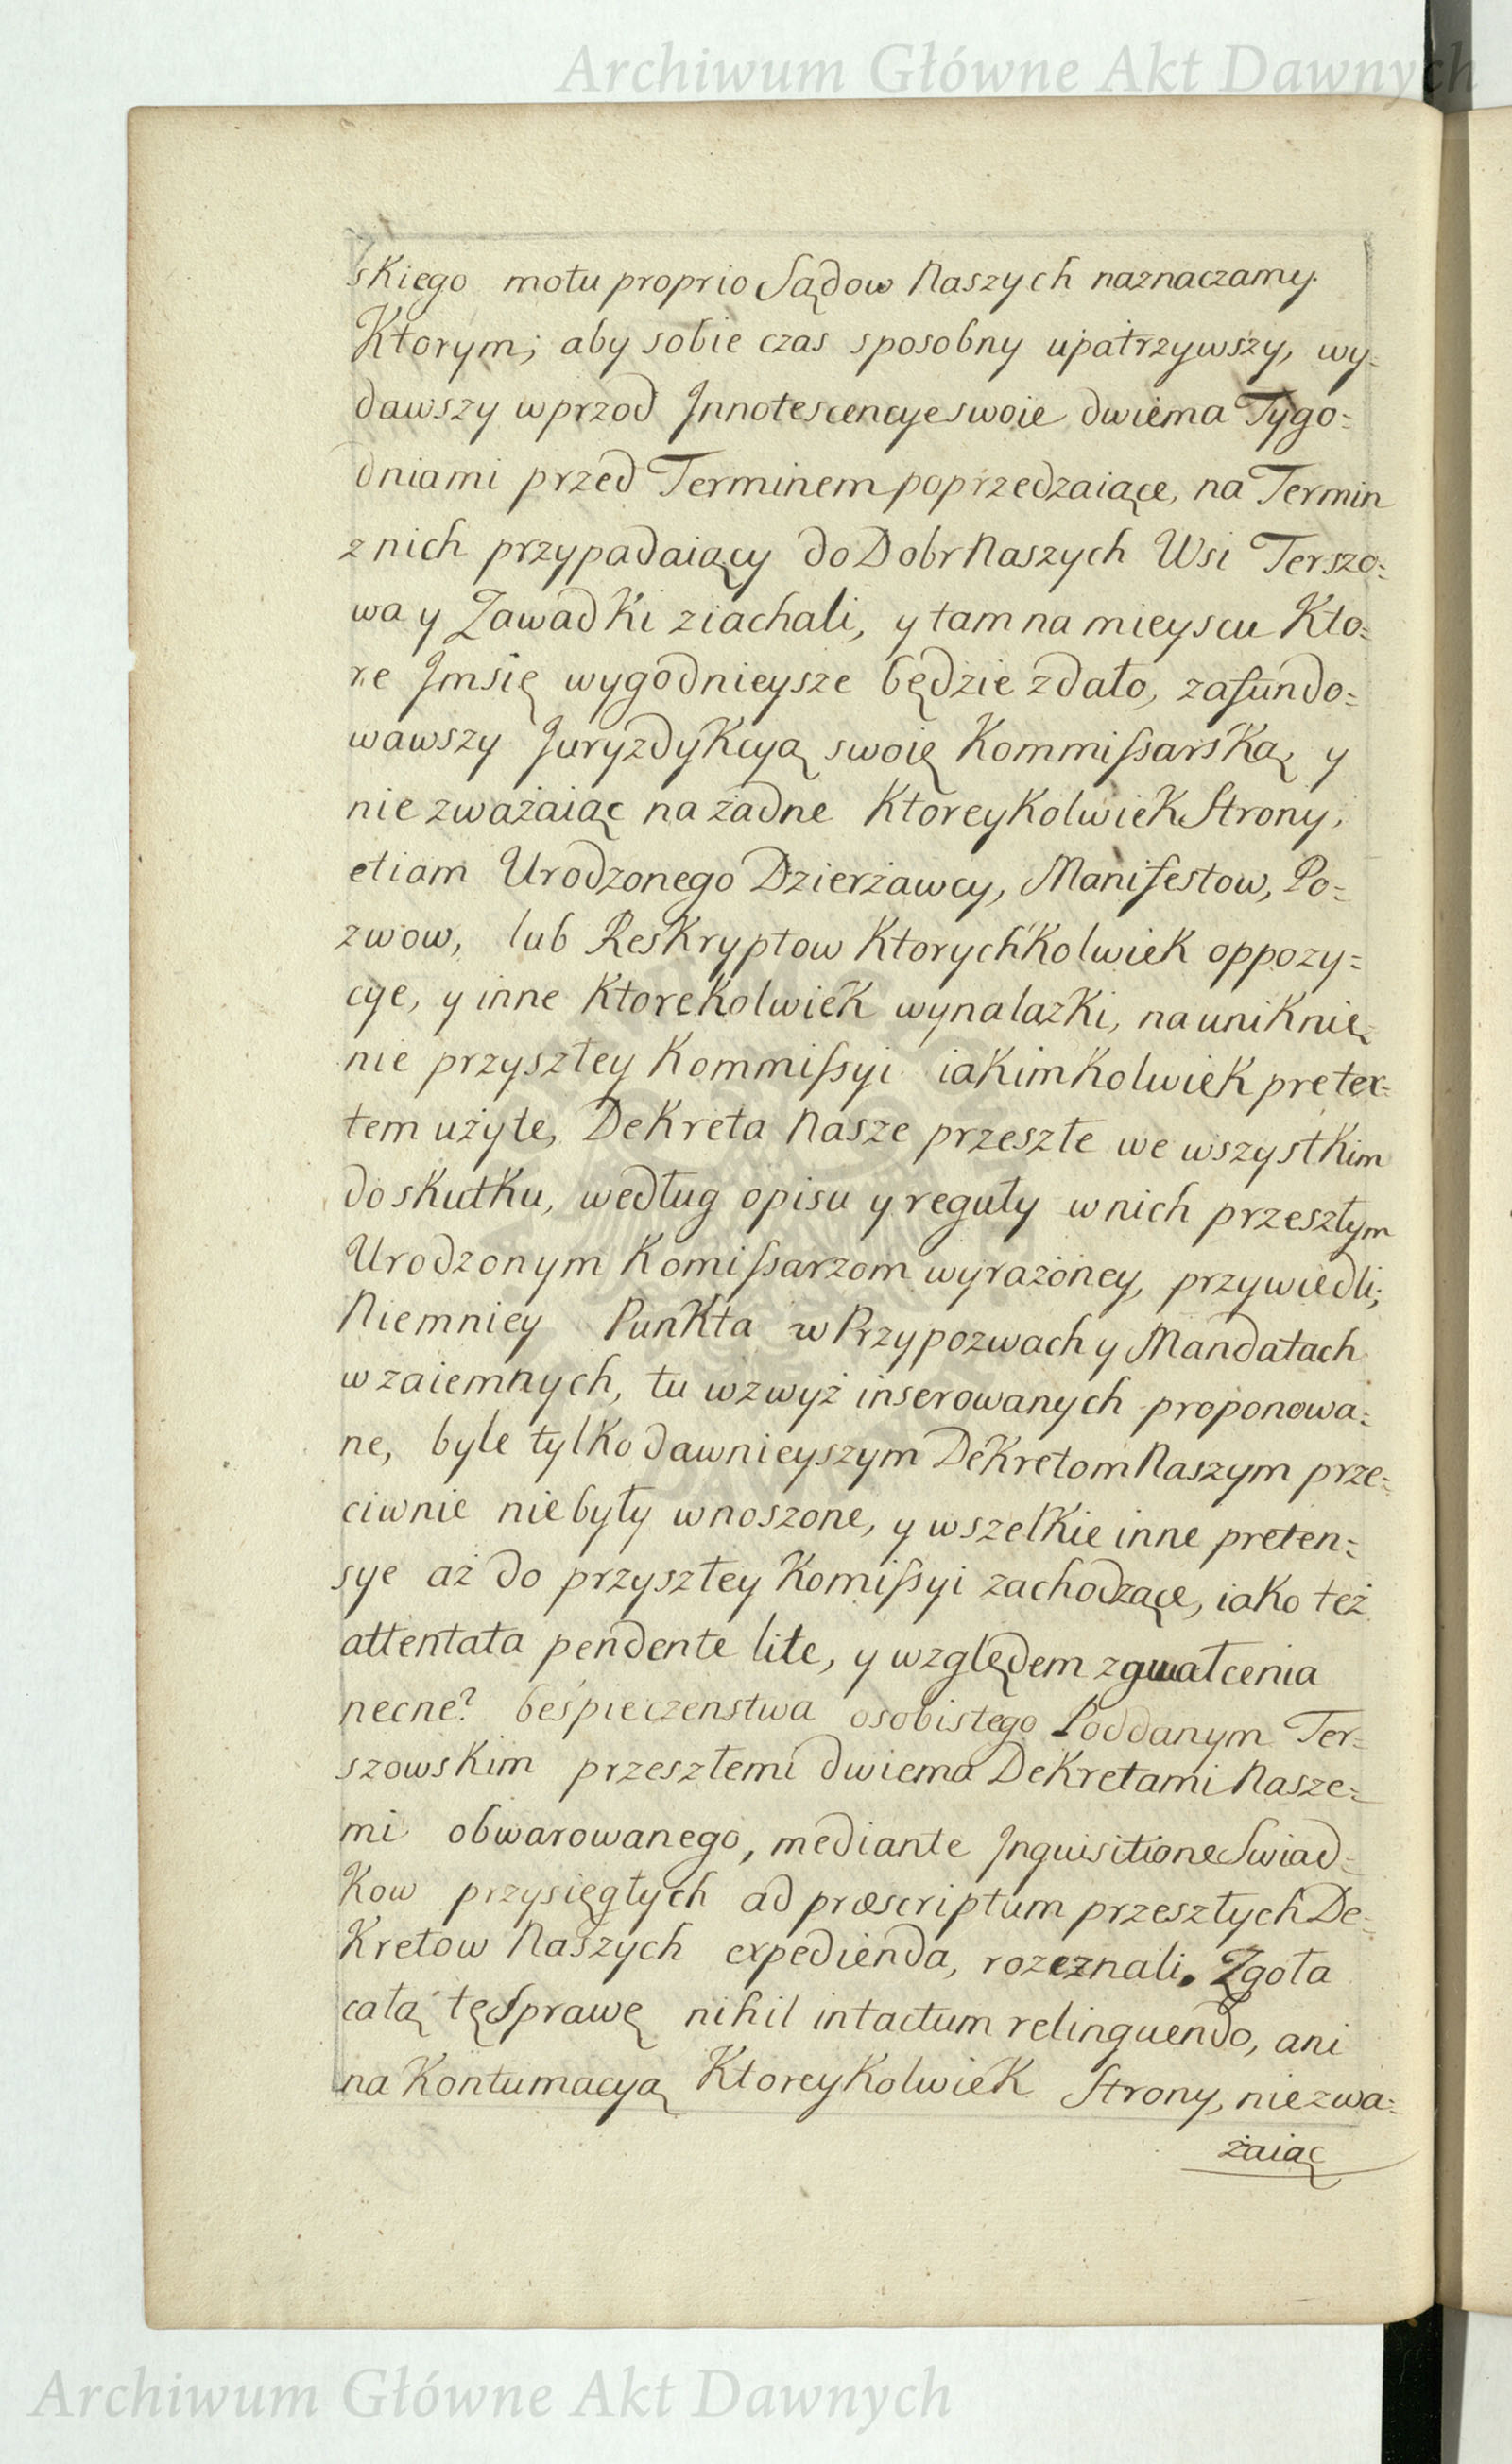 Archiwum Główne Akt Dawnych
skiego motu proprio Sądow Naszych naznaczamy.
Ktorym; aby sobie czas sposobny upatrzywszy, wy=
dawszy wprzod Innotescencye swoie dwiema Tygo=
dniami przed Terminem poprzedzaiące, na Termin
z nich przypadaiący do Dobr Naszych Wsi Terszo=
wa y Zawadki ziachali, y tam na mieyscu Kto=
re Imsię wygodnieysze będzie zdało, zafundo=
wawszy Juryzdykcyą swoię Kommissarską y
nie zważaiąc na żadne Ktoreykolwiek Strony,
etiam Urodzonego Dzierżawcy, Manifestow, Po=
zwow, lub Reskryptow Ktorychkolwiek oppozy=
cye, y inne Ktorekolwiek wynalazki, na uniknie
nie przyszłey Kommissyi iakimkolwiek pretex=
tem użyte, Dekreta Nasze przeszłe we wszystkim
do skutku, według opisu y reguły w nich przeszłym
Urodzonym Komissarzom wyrażoney, przywiedli;
Niemniey Punkta w Przypozwach y Mandatach
wzaiemnych, tu wzwyż inserowanych proponowa=
ne, byle tylko dawnieyszym Dekretom Naszym prze=
ciwnie niebyły wnoszone, y wszelkie inne preten=
sye aż do przyszłey Komissyi zachodzące, iako też
attentata pendente lite, y względem zgwałcenia
necne? beśpieczenstwa osobistego Poddanym Ter=
szowskim przeszłemi dwiema Dekretami Nasze=
mi obwarowanego, mediante Inquisitione Swiad=
Kow przysięgłych ad præscriptum przeszłych De=
Kretow Naszych expedienda, rozeznali. Zgoła
całą tę Sprawę nihil intactum relinquendo, ani
na Kontumacyą Ktoreykolwiek Strony, niezwa=
żaiąc
Archiwum Główne Akt Dawnych